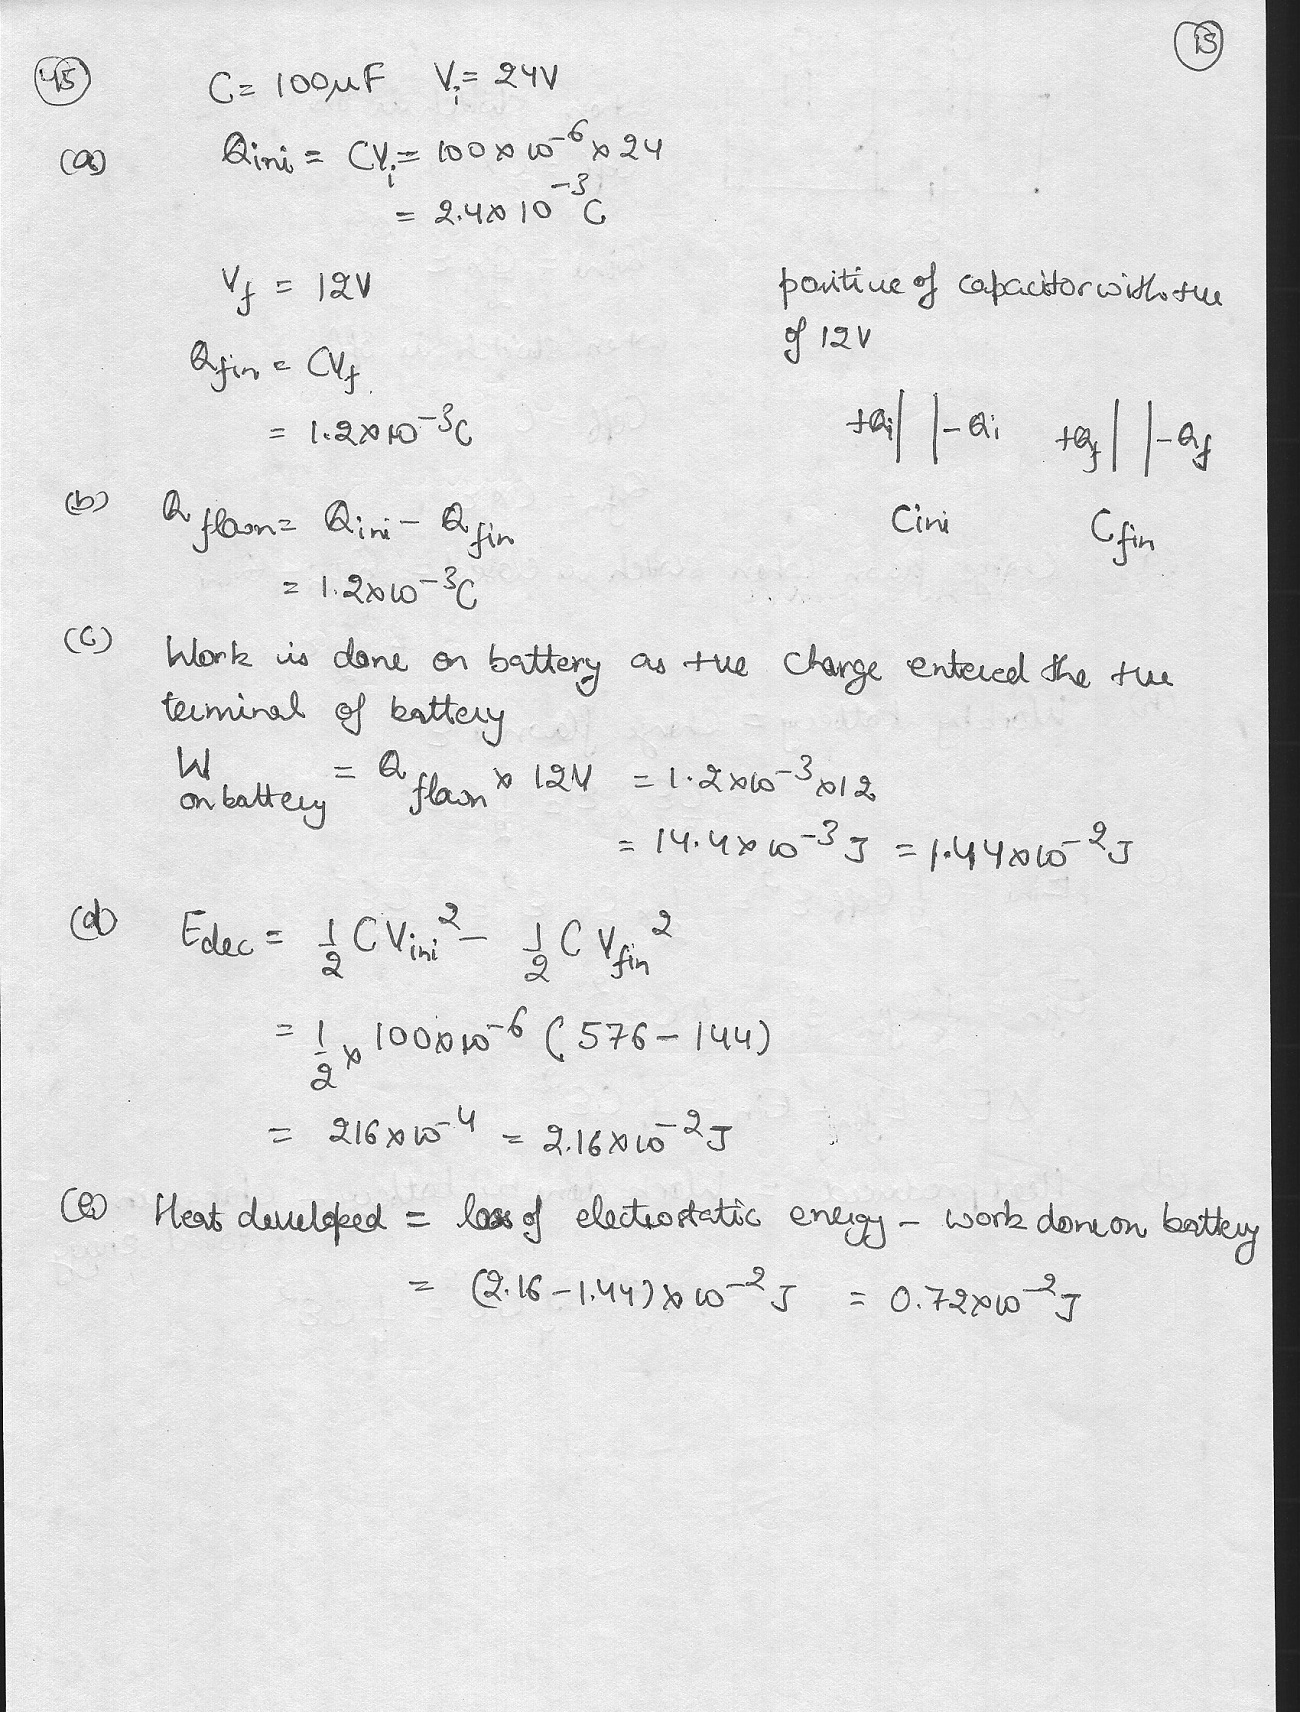 15
45 C = 100μF Vi = 24V
(a) Qini = CVi = 100 × 10⁻⁶ × 24
= 2.4 × 10⁻³C
Vf = 12V
positive of capacitor with +ve
of 12V
Qfin = CVf
= 1.2 × 10⁻³C
+Qi | | -Qi +Qf | | -Qf
Cini Cfin
(b) Q flown = Qini - Qfin
= 1.2 × 10⁻³C
(c) Work is done on battery as +ve charge entered the +ve
terminal of battery
W on battery = Q flown × 12V = 1.2 × 10⁻³ × 12
= 14.4 × 10⁻³ J = 1.44 × 10⁻² J
(d) Edec = 1/2 C Vini² - 1/2 C Vfin²
= 1/2 × 100 × 10⁻⁶ (576 - 144)
= 216 × 10⁻⁴ = 2.16 × 10⁻² J
(e) Heat developed = loss of electrostatic energy - work done on battery
= (2.16 - 1.44) × 10⁻² J = 0.72 × 10⁻² J